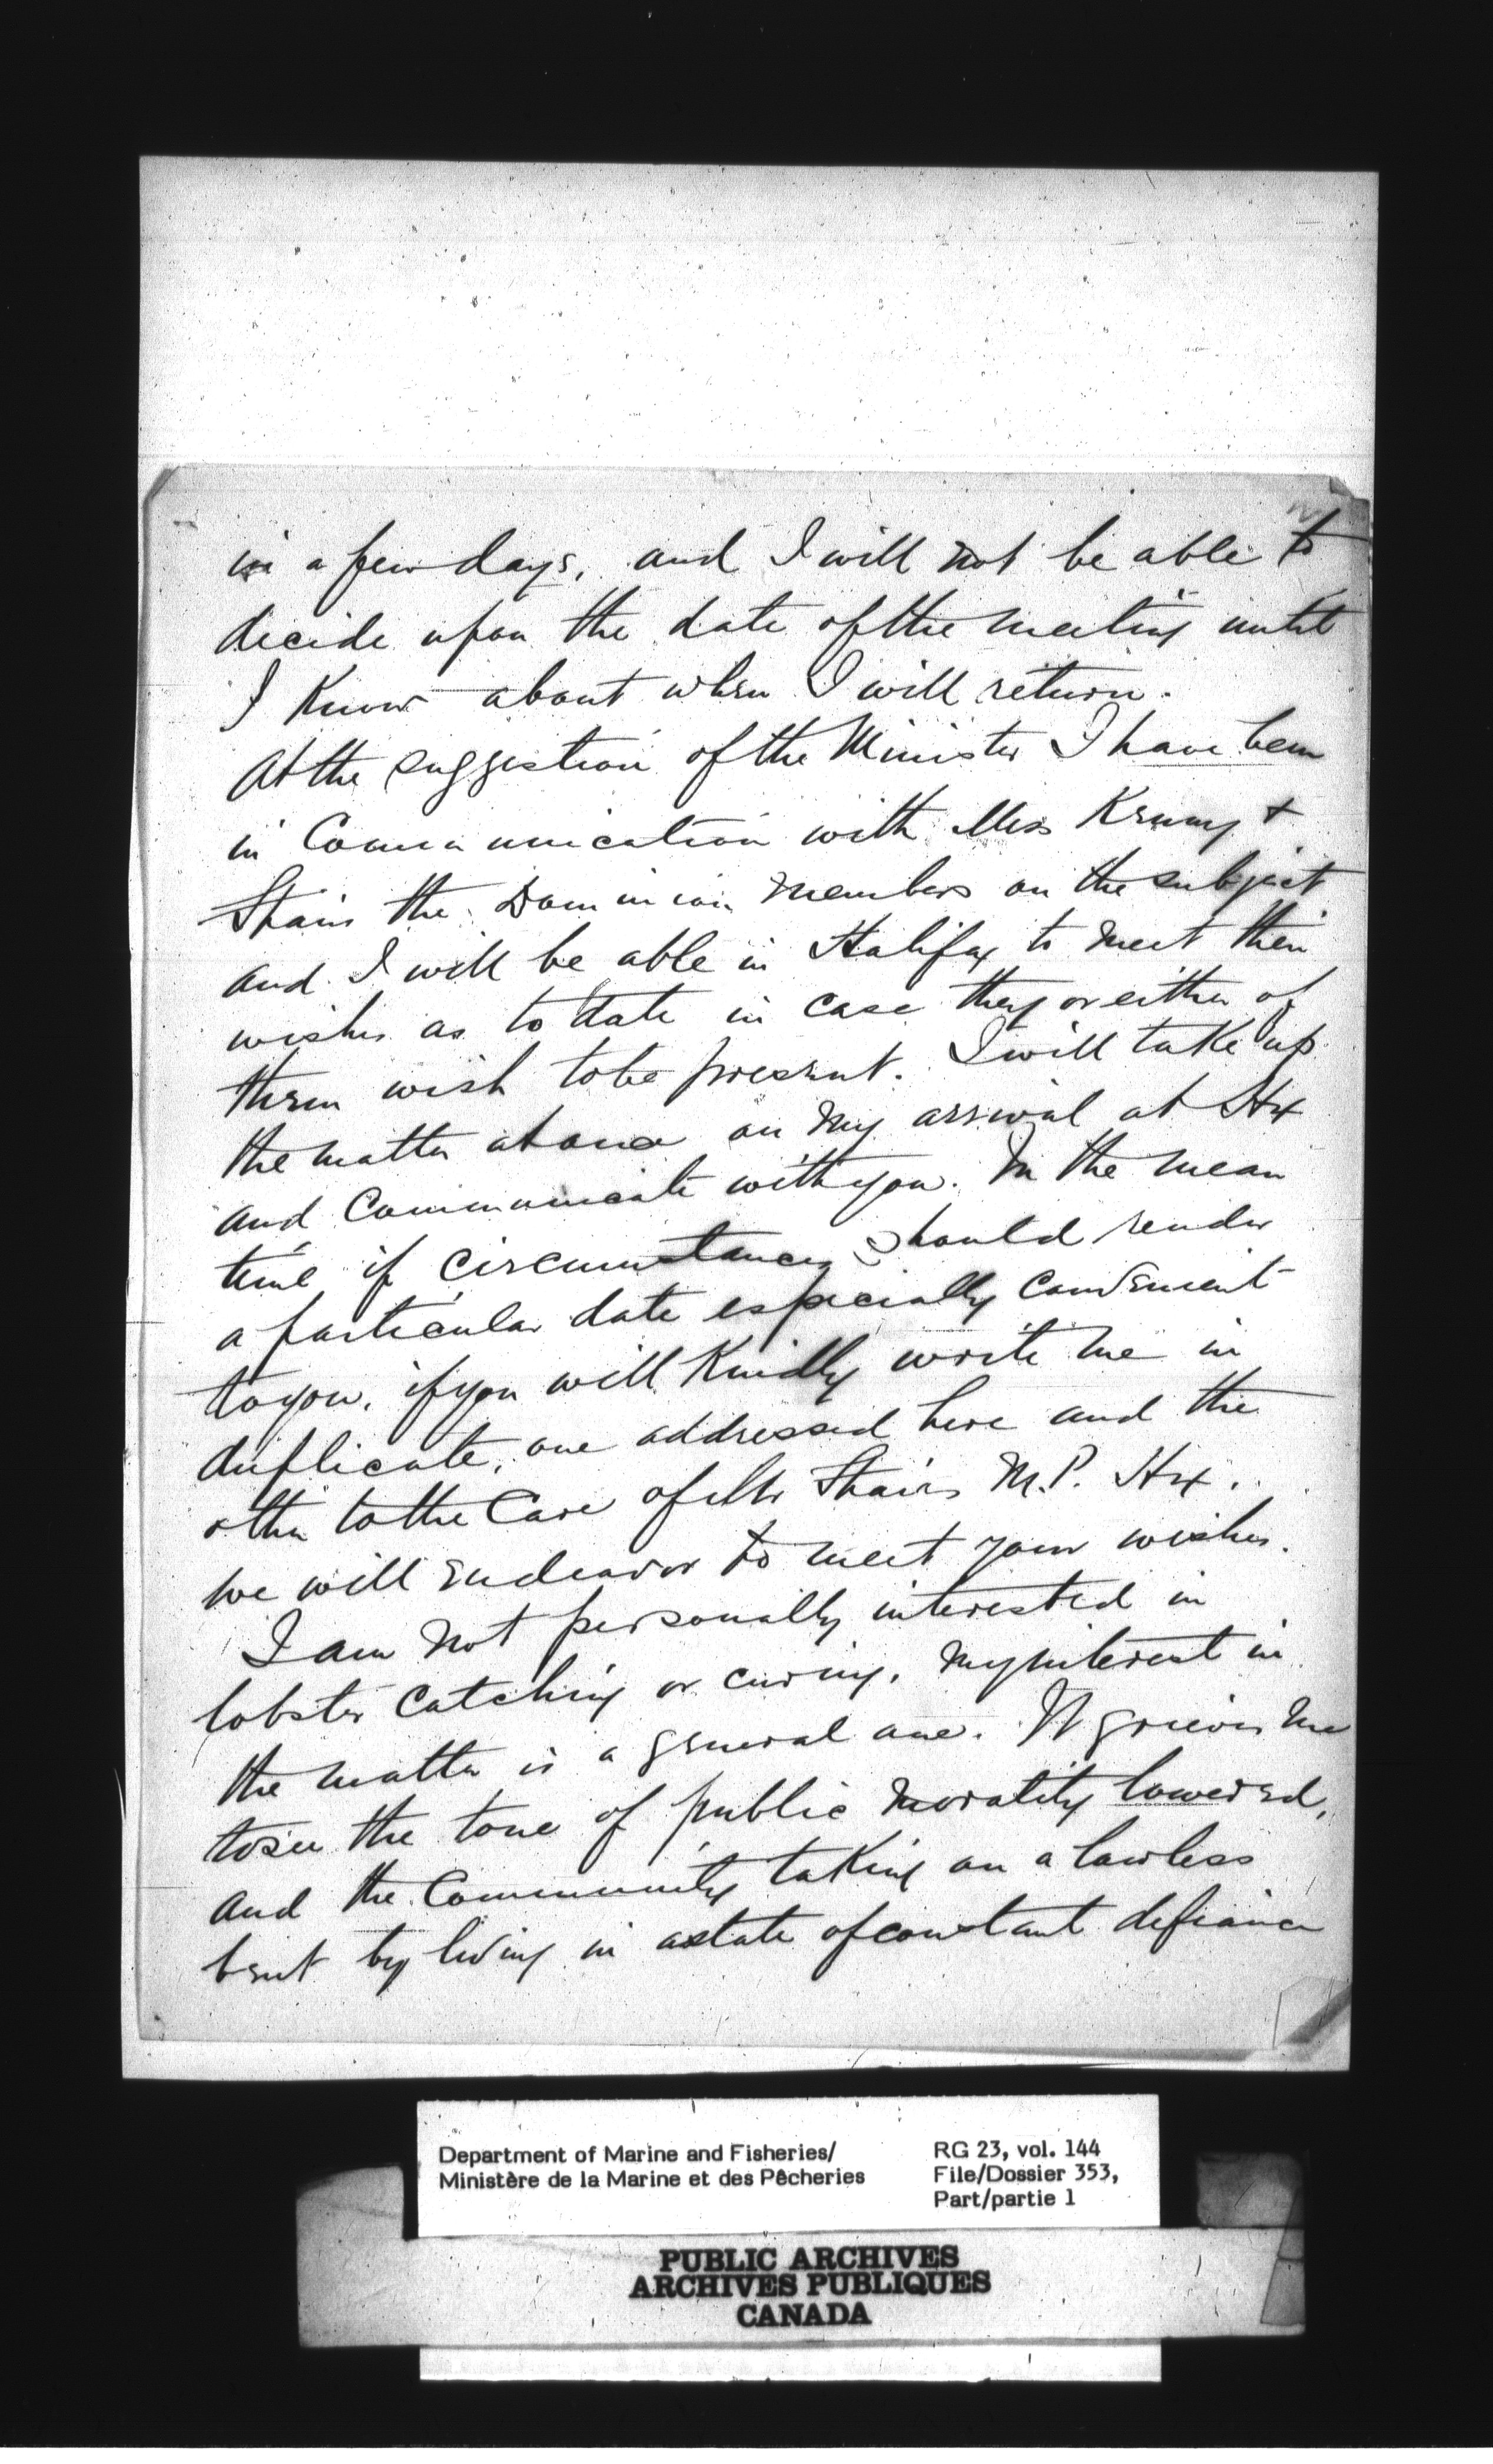 in a few days, and I will not be able to
decide upon the date of the meeting until
I Know about when I will return.
At the suggestion of the Minister I have been
in Communication with Mess Kenny +
Stairs the Dominion members on the subject
and I will be able in Halifax to meet their
wishes as to date in case they or either of
them wish to be present. I will take up
the matter at once on my arrival at Hx
and Communicate with you. In the mean
time if circumstances should render
a particular date especially convenient
to you, if you will Kindly write me in
duplicate, one addressed here and the
other to the Care of Mr Stairs M.P. Hx.
we will endeavor to meet your wishes.
I am not personally interested in
lobster catching or curing, my interest in
the matter is a general one. It grieves me
to see the tone of public morality lowered,
and the Community taking on a lawless
bent by living in a state of constant defiance
Department of Marine and Fisheries/
Ministère de la Marine et des Pêcheries
RG 23, vol. 144
File/Dossier 353,
Part/partie 1
PUBLIC ARCHIVES
ARCHIVES PUBLIQUES
CANADA